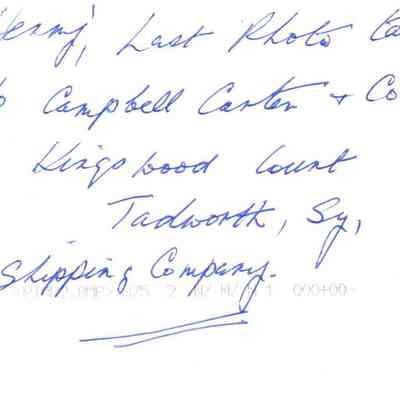 Jenny, Last Photo ta
Campbell Carter + Co
Kingswood Court
Tadworth, Sy,
Shipping Company.
000+00-